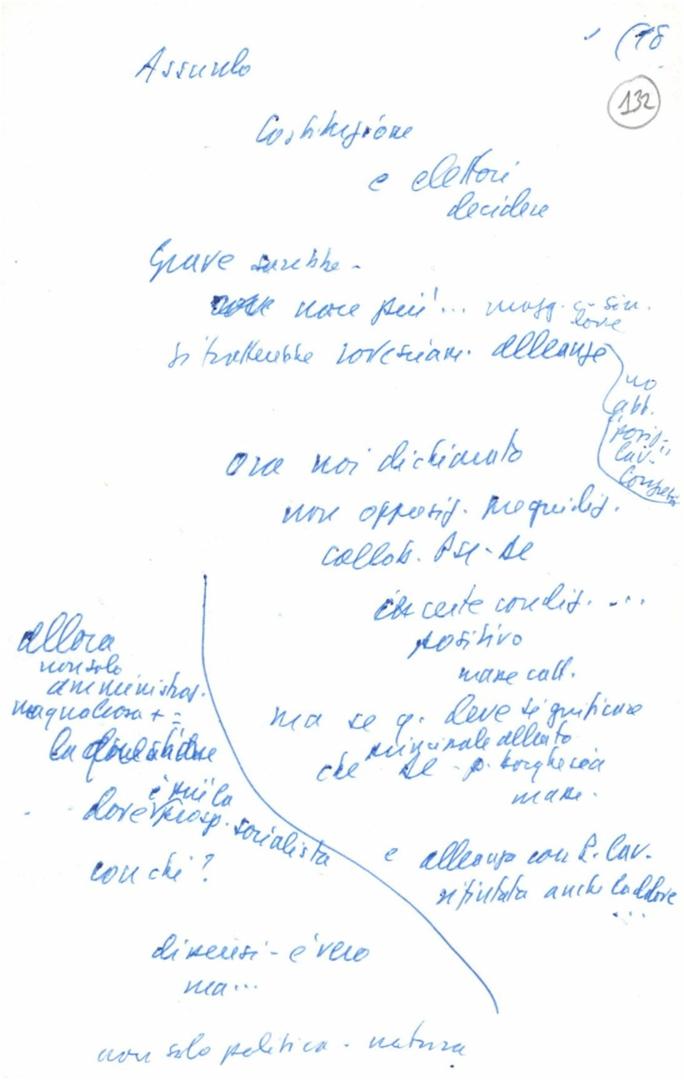 (18
132
Assurdo
Costituzione
e elettori
decidere
Grave sarebbe -
non più... magg. sin.
dove
si tratterebbe rovesciam. alleanze
no
abb.
"posiz.
lav."
Ora noi dichiarato
non opposiz. pregiudiz.
collab. PSI-DC
in certe condiz. ...
positivo
ma se q. deve significare
principale alleato
che DC - p. borghesia
e alleanza con P. Lav.
rifiutata anche laddove
...
allora
non solo
amministraz.
ma qualcosa + =
la questione
è più la
dov'è prosp. socialista
con chi?
dissensi - è vero
ma...
non solo politica - natura